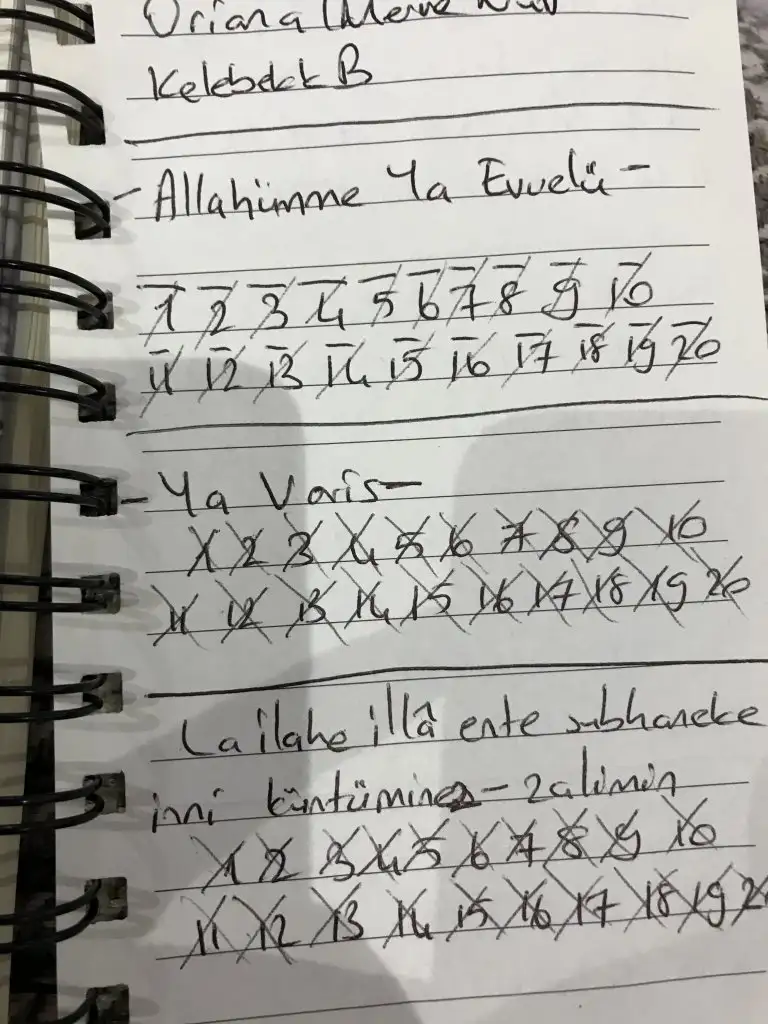 Oriana (Merve Nur
Kelebek B
- Allahümme Ya Evvelü -
1 2 3 4 5 6 7 8 9 10
11 12 13 14 15 16 17 18 19 20
- Ya Varis -
1 2 3 4 5 6 7 8 9 10
11 12 13 14 15 16 17 18 19 20
La ilahe illâ ente subhaneke
inni küntüminez-zalimin
1 2 3 4 5 6 7 8 9 10
11 12 13 14 15 16 17 18 19 20